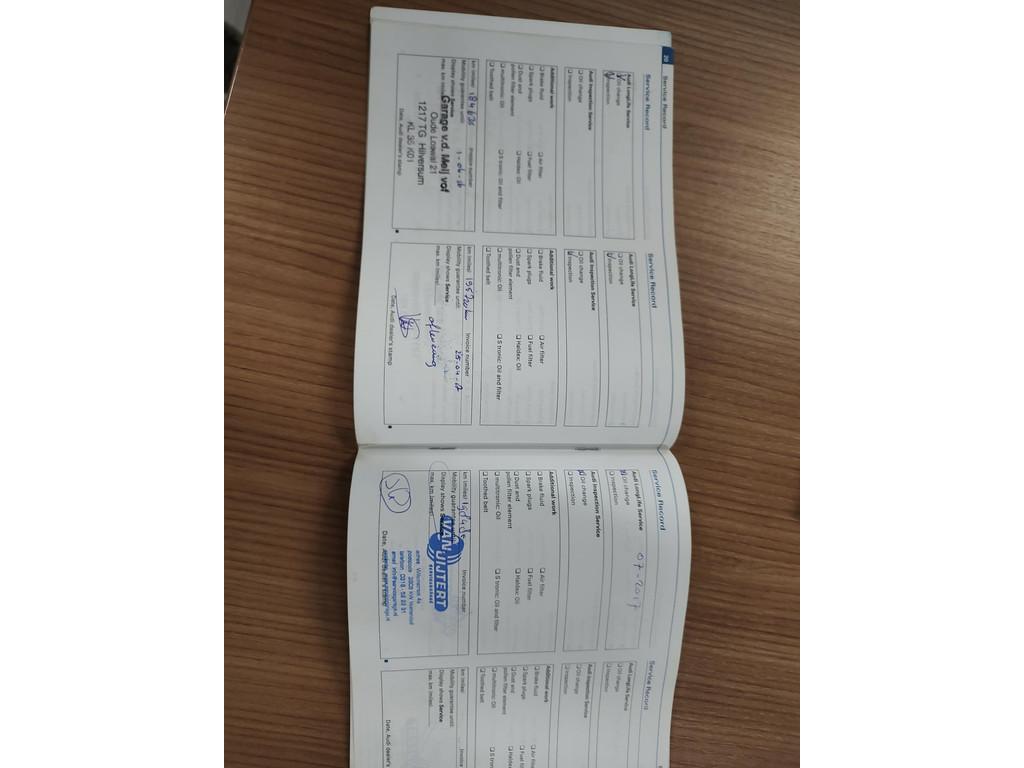 20
Service Record
Service Record
Audi LongLife Service
Oil change
Inspection
Audi Inspection Service
Oil change
Inspection
Additional work
Brake fluid
Air filter
Spark plugs
Fuel filter
Dust and
pollen filter element
Haldex: Oil
multitronic: Oil
S tronic: Oil and filter
Toothed belt
km (miles)
Invoice number
Mobility guarantee until:
Display shows Service
max. km (miles)
Garage v.d. Meij vof
1217 TG Hilversum
Date, Audi dealer's stamp
Service Record
Audi LongLife Service
Oil change
Inspection
Audi Inspection Service
Oil change
Inspection
Additional work
Brake fluid
Air filter
Spark plugs
Fuel filter
Dust and
pollen filter element
Haldex: Oil
multitronic: Oil
S tronic: Oil and filter
Toothed belt
km (miles)
Invoice number
Mobility guarantee until:
Display shows Service
max. km (miles)
aflevering
Date, Audi dealer's stamp
Service Record
Audi LongLife Service
07-2017
Oil change
Inspection
Audi Inspection Service
Oil change
Inspection
Additional work
Brake fluid
Air filter
Spark plugs
Fuel filter
Dust and
pollen filter element
Haldex: Oil
multitronic: Oil
S tronic: Oil and filter
Toothed belt
km (miles)
Invoice number
Mobility guarantee
Display shows
max. km (miles)
VAN UIJTERT
Date, Audi dealer's stamp
Service Record
Audi LongLife Service
Oil change
Inspection
Audi Inspection Service
Oil change
Inspection
Additional work
Brake fluid
Air filter
Spark plugs
Dust and
pollen filter element
multitronic: Oil
Toothed belt
km (miles)
Invoice
Mobility guarantee until:
Display shows Service
max. km (miles)
Date, Audi dealer's